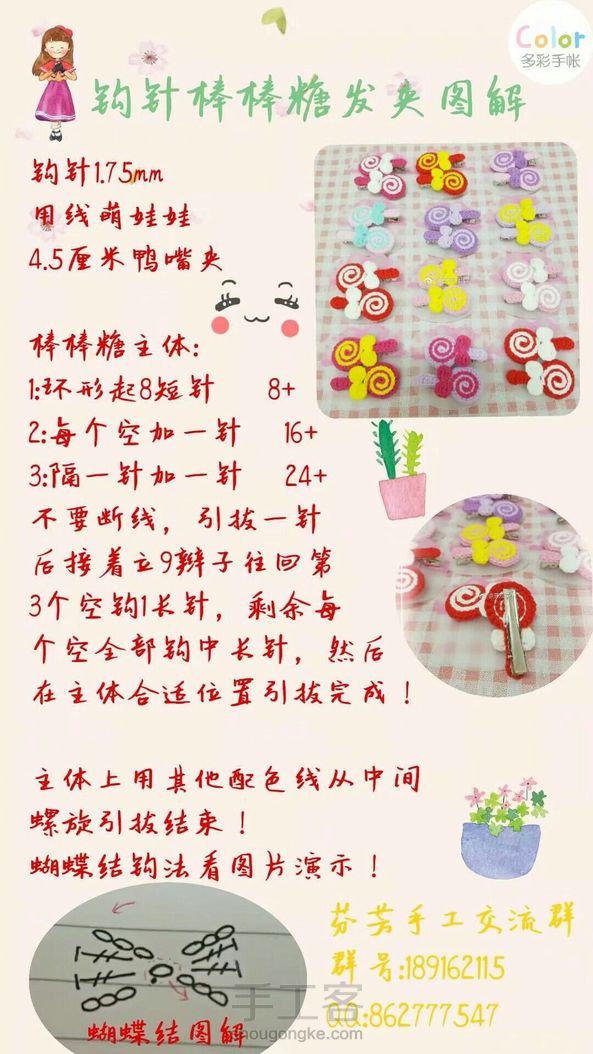 Color
多彩手帐
钩针棒棒糖发夹图解
钩针1.75mm
用线萌娃娃
4.5厘米鸭嘴夹
棒棒糖主体:
1:环形起8短针 8+
2:每个空加一针 16+
3:隔一针加一针 24+
不要断线，引拔一针
后接着立9辫子往回第
3个空钩1长针，剩余每
个空全部钩中长针，然后
在主体合适位置引拔完成！
主体上用其他配色线从中间
螺旋引拔结束！
蝴蝶结钩法看图片演示！
芬芳手工交流群
群号:189162115
QQ:862777547
手工客
shougongke.com
蝴蝶结图解